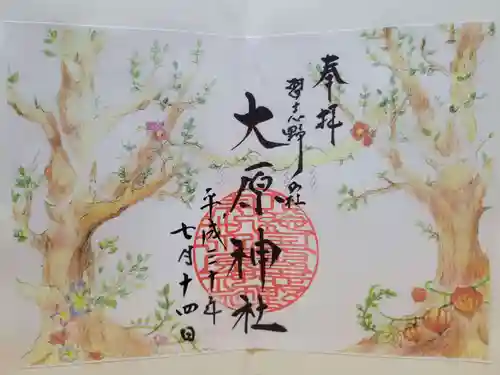 奉拝
習志野の社
大原神社
平成三十年
七月十四日